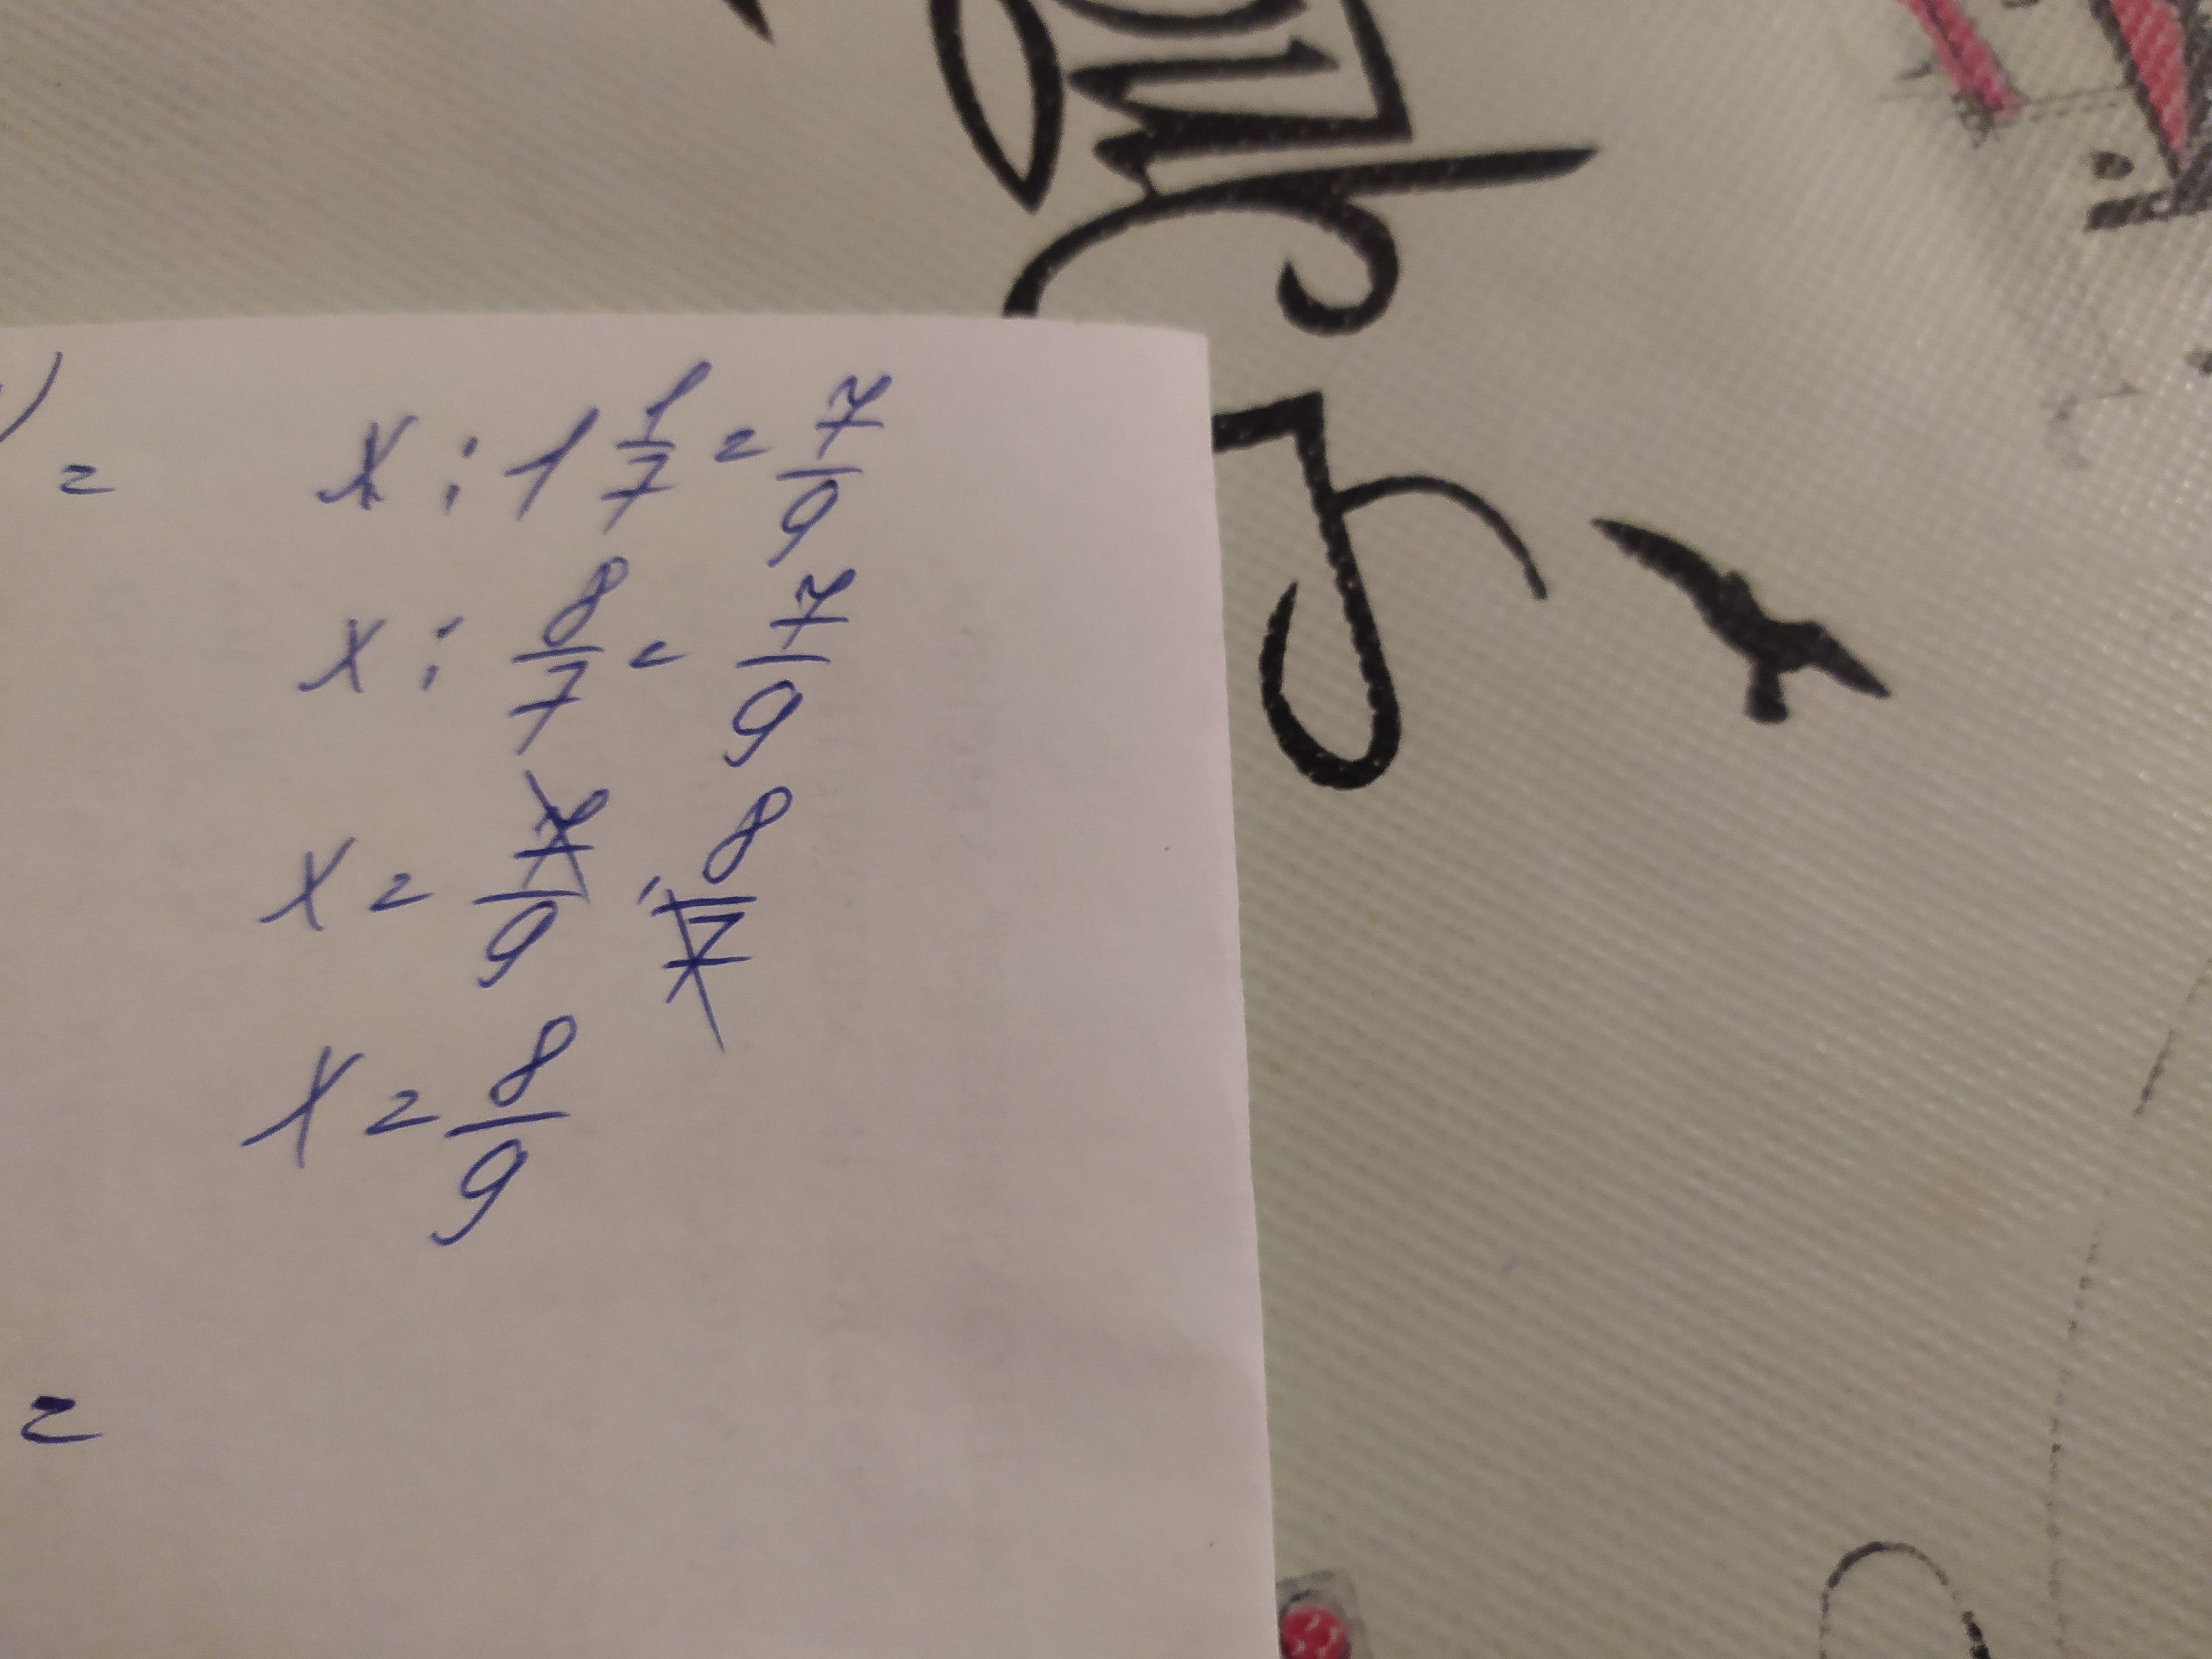 ) = x : 1 1/7 = 7/9
x : 8/7 = 7/9
x = 7/9 · 8/7
x = 8/9
=